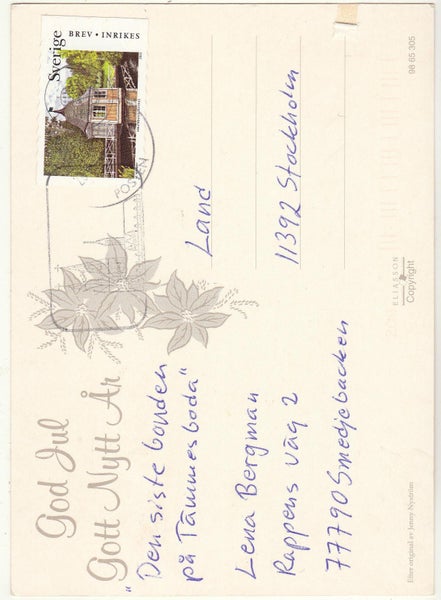 God Jul
Gott Nytt År
"Den siste bonden
på Tämmesboda"
Lena Bergman
Rappens väg 2
77790 Smedjebacken
Sverige
BREV • INRIKES
POSTEN
Land
11392 Stockholm
ELIASSON
Copyright
Efter original av Jenny Nyström
98 65 305